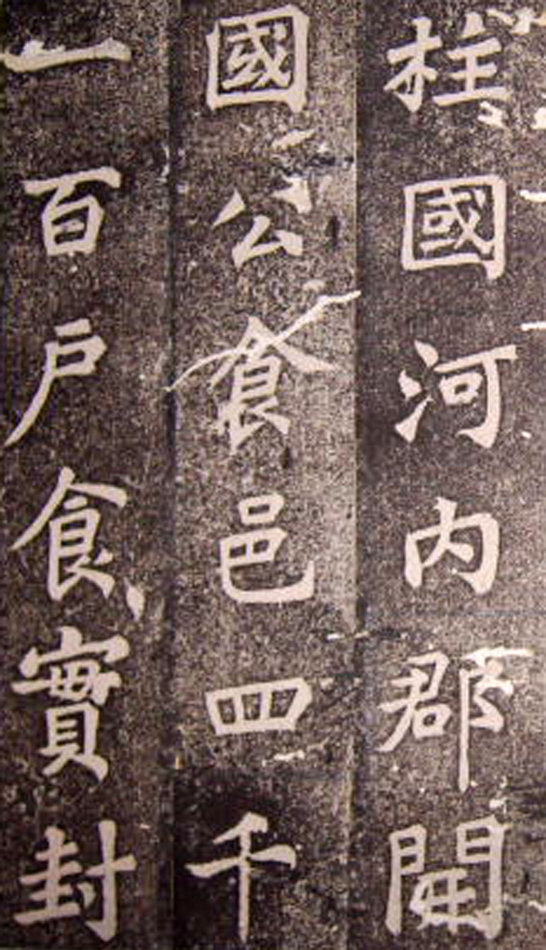 柱國河内郡開
國公食邑四千
一百戶食實封